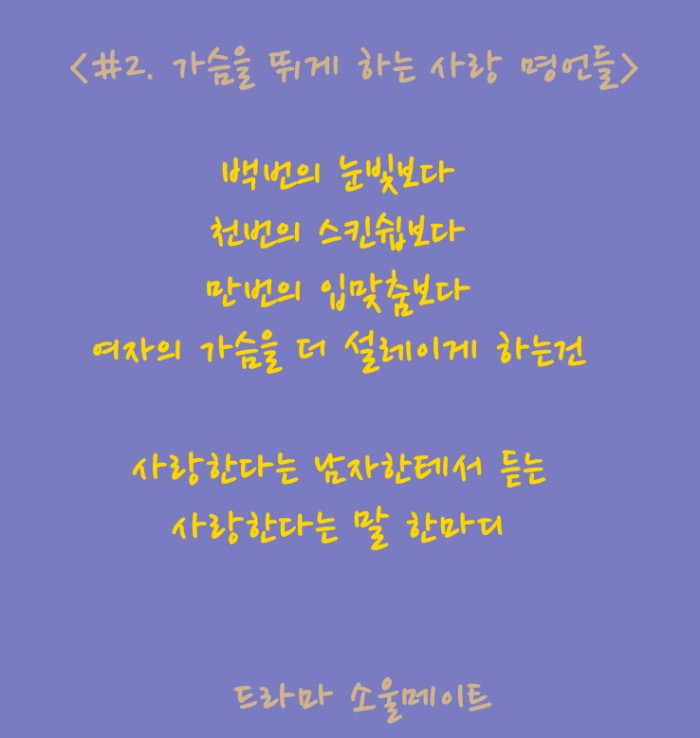 <#2. 가슴을 뛰게 하는 사랑 명언들>
백번의 눈빛보다
천번의 스킨쉽보다
만번의 입맞춤보다
여자의 가슴을 더 설레이게 하는건
사랑한다는 남자한테서 듣는
사랑한다는 말 한마디
드라마 소울메이트